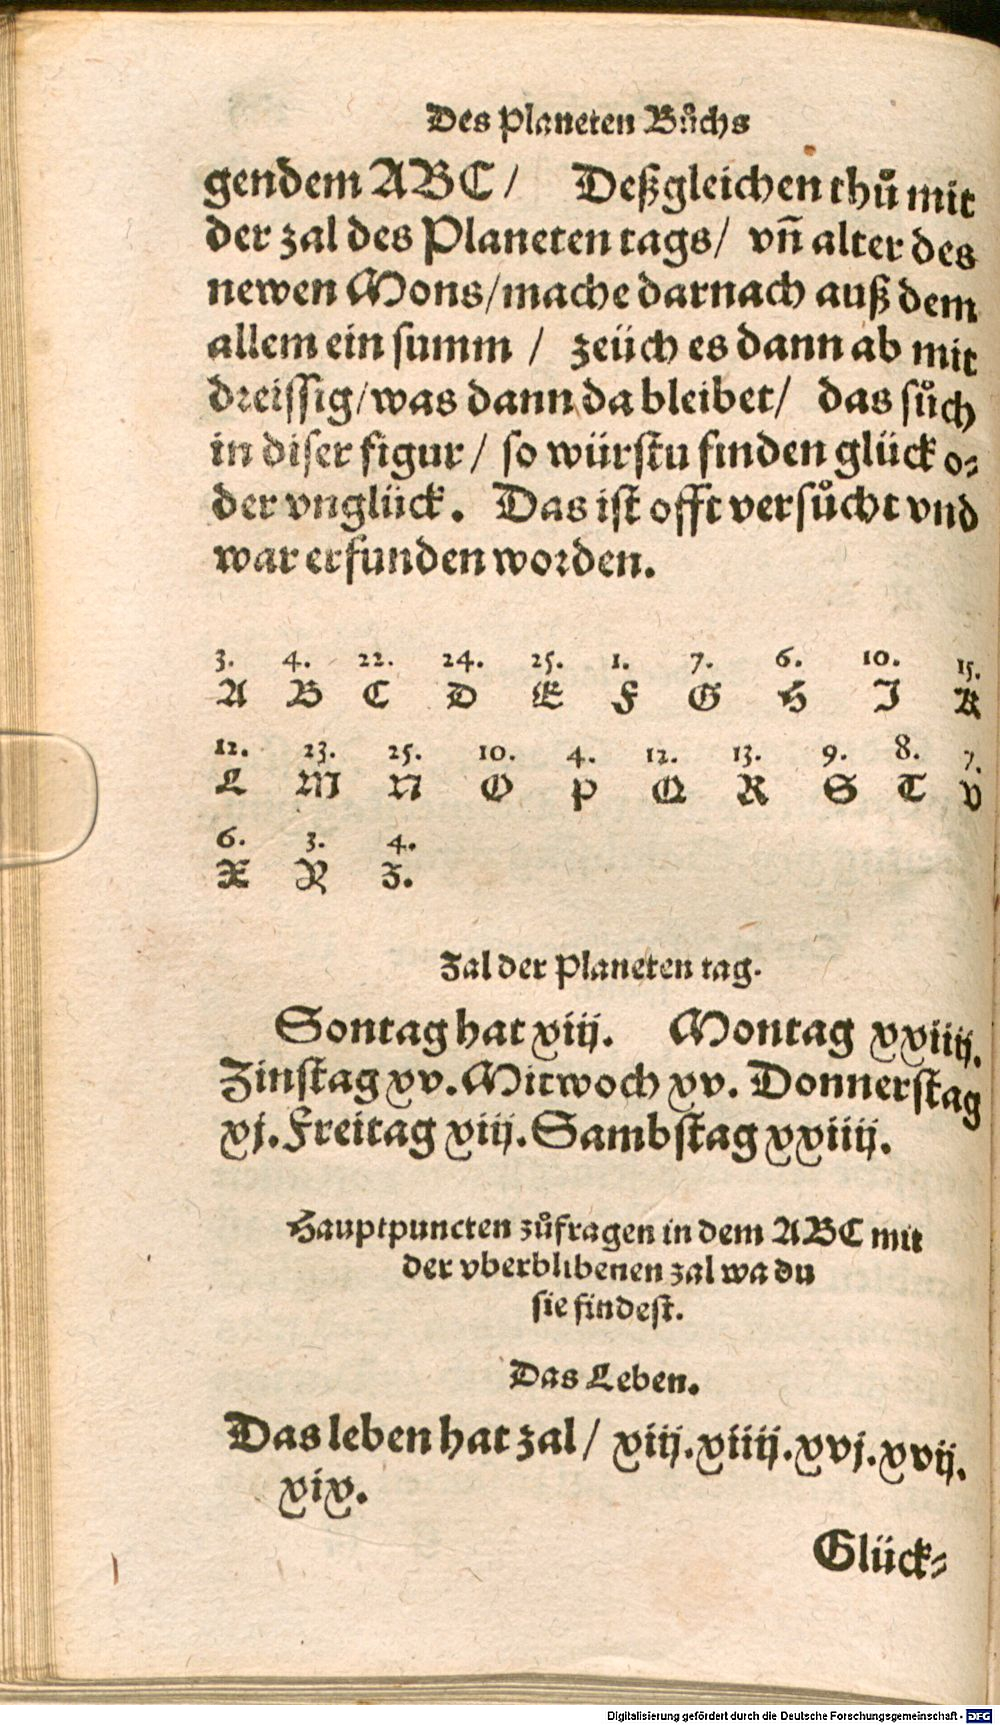 Des Planeten Bůchs
gendem ABC / Deßgleichen thů mit
der zal des Planeten tags / vñ alter des
newen Mons / mache darnach auß dem
allem ein summ / zeüch es dann ab mit
dreissig / was dann da bleibet / das sůch
in diser figur / so würstu finden glück o⸗
der vnglück. Das ist offt versůcht vnd
war erfunden worden.
3. 4. 22. 24. 25. 1. 7. 6. 10. 15.
A B C D E F G H I K
12. 23. 25. 10. 4. 12. 13. 9. 8. 7.
L M N O P Q R S T V
6. 3. 4.
X Y Z.
Zal der Planeten tag.
Sontag hat xiij. Montag xxiiij.
Zinstag xv. Mitwoch xv. Donnerstag
xj. Freitag xiij. Sambstag xxiiij.
Hauptpuncten zůfragen in dem ABC mit
der vberblibenen zal wa du
sie findest.
Das Leben.
Das leben hat zal / xiij. xiiij. xvj. xvij.
xix.
Glück⸗
Digitalisierung gefördert durch die Deutsche Forschungsgemeinschaft - DFG